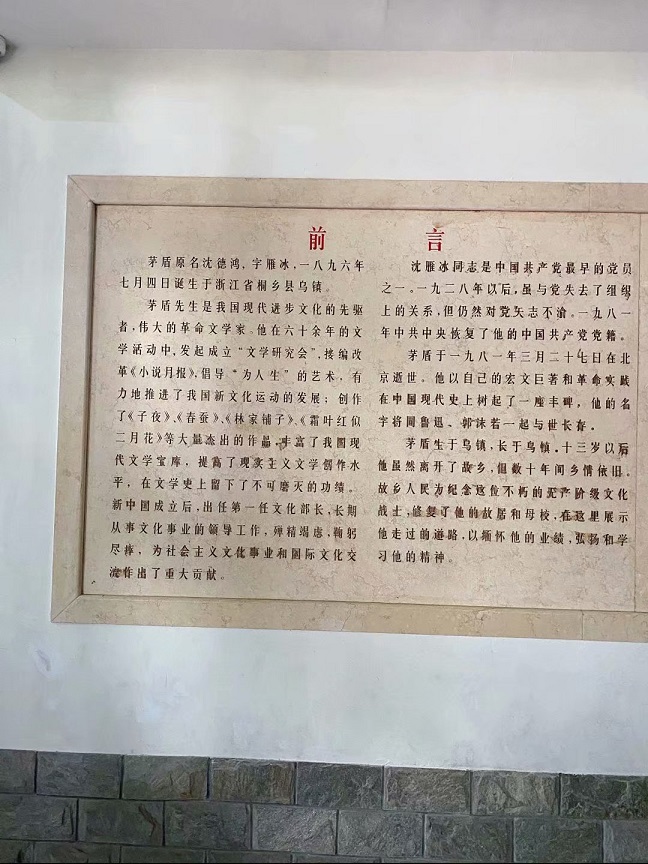 前言
茅盾原名沈德鸿，字雁冰，一八九六年
七月四日诞生于浙江省桐乡县乌镇。
茅盾先生是我国现代进步文化的先驱
者，伟大的革命文学家。他在六十余年的文
学活动中，发起成立“文学研究会”，接编改
革《小说月报》，倡导“为人生”的艺术，有
力地推进了我国新文化运动的发展；创作
了《子夜》、《春蚕》、《林家铺子》、《霜叶红似
二月花》等大量杰出的作品，丰富了我国现
代文学宝库，提高了现实主义文学创作水
平，在文学史上留下了不可磨灭的功绩。
新中国成立后，出任第一任文化部长，长期
从事文化事业的领导工作，殚精竭虑，鞠躬
尽瘁，为社会主义文化事业和国际文化交
流作出了重大贡献。
沈雁冰同志是中国共产党最早的党员
之一。一九二八年以后，虽与党失去了组织
上的关系，但仍然对党矢志不渝。一九八一
年中共中央恢复了他的中国共产党党籍。
茅盾于一九八一年三月二十七日在北
京逝世。他以自己的宏文巨著和革命实践
在中国现代史上树起了一座丰碑，他的名
字将同鲁迅、郭沫若一起与世长存。
茅盾生于乌镇，长于乌镇，十三岁以后
他虽然离开了故乡，但数十年间乡情依旧。
故乡人民为纪念这位不朽的无产阶级文化
战士，修复了他的故居和母校，在这里展示
他走过的道路，以缅怀他的业绩，弘扬和学
习他的精神。